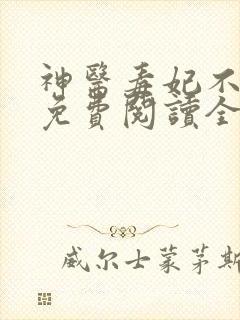 神醫毒妃不
免費閱讀全
威尔士菜茅斯